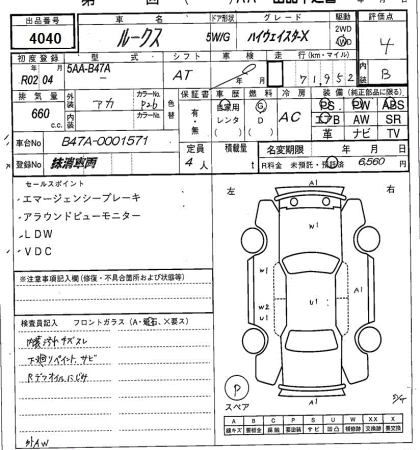 出品番号 車名 ドア形状 グレード 駆動 評価点
4040 ルークス 5W/G ハイウェイスターX 2WD 4WD 4
初度登録 型式 シフト 車検 走行(km・マイル) 内装
R02年04月 5AA-B47A AT 年 月 71,952 B
排気量 外装 カラーNo. 色替 保証書 車歴 燃料 冷房 装備(純正部品に限る)
660c.c. アカ 有・無 自家用 レンタ ( ) G D AC PS PW ABS
内装 カラーNo. エアB AW SR
革 ナビ TV
車台No B47A-0001571
定員 積載量 名変期限 年 月 日
登録No 抹消車両 4人 t R料金 未預託・預託済 6,560円
セールスポイント
・エマージェンシーブレーキ
・アラウンドビューモニター
・LDW
・VDC
※注意事項記入欄(修復・不具合箇所および状態等)
検査員記入 フロントガラス(A・飛石、×要ス)
内装汚れキズスレ
下廻りペイント、サビ
Rデフオイルにじみ
外AW
左 右
A1
W1
U1
W2
U1
A1
P
スペア
A B C P S U W XX X
線キズ 要板金 腐触 要塗装 サビ 凹凸 補修跡 交換跡 要交換